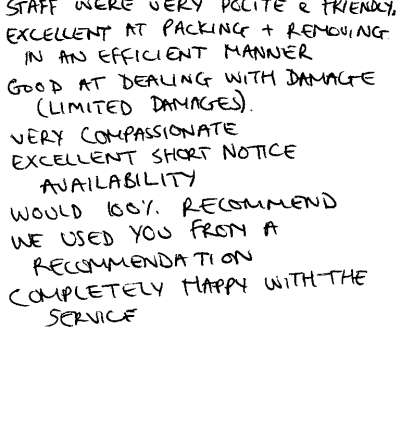 STAFF WERE VERY POLITE & FRIENDLY.
EXCELLENT AT PACKING + REMOVING
IN AN EFFICIENT MANNER
GOOD AT DEALING WITH DAMAGE
(LIMITED DAMAGES).
VERY COMPASSIONATE
EXCELLENT SHORT NOTICE
AVAILABILITY
WOULD 100% RECOMMEND
WE USED YOU FROM A
RECOMMENDATION
COMPLETELY HAPPY WITH THE
SERVICE